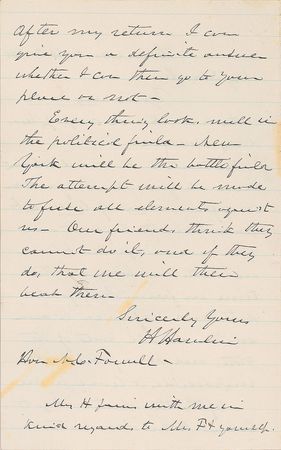 After my return I can
give you a definite answer
whether I can then go to your
place or not —
Every thing looks well in
the political field — New
York will be the battlefield
The attempt will be made
to fuse all elements against
us — Our friends think they
cannot do it, and if they
do, that we will then
beat them
Sincerely Yours
H Hamlin
Hon N. G. Fowell —
Mrs H joins with me in
kind regards to Mrs F & yourself.